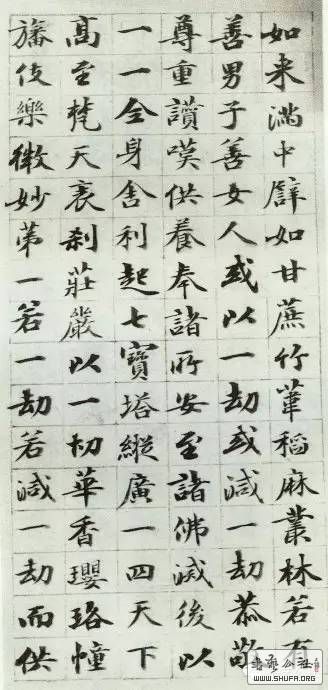 如来滿中譬如甘蔗竹葦稻麻叢林若有
善男子善女人或以一劫或減一劫恭敬
尊重讃嘆供養奉諸所安至諸佛滅後以
一一全身舍利起七寶塔縱廣一四天下
髙至梵天表刹莊嚴以一切華香瓔珞幢
旛伎樂微妙苐一若一劫若減一劫而供
WWW.SHUFA.ORG